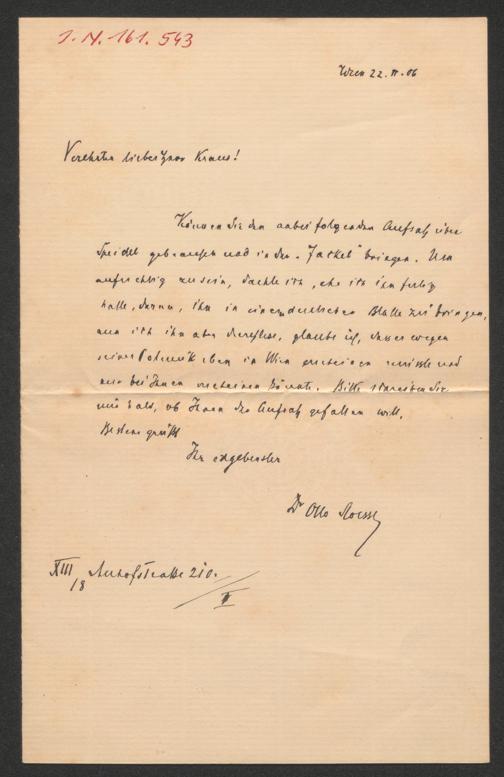 I. N. 161.543
Wien 22. II. 06
Verehrter lieber Herr Kraus!
Können Sie den anbei folgenden Aufsatz über
Speidel gebrauchen und in der „Fackel" bringen. Um
aufrichtig zu sein, dachte ich, ehe ich ihn fertig
hatte, daran, ihn in einem deutschen Blatte zu bringen,
nun ich ihn aber durchlese, glaube ich, dass er wegen
seiner Polemik eben in Wien erscheinen müsste und
nur bei Ihnen erscheinen könnte. Bitte schreiben Sie
mir bald, ob Ihnen der Aufsatz gefallen will.
Bestens grüßt
Ihr ergebenster
Dr Otto
XIII
/8
210.
/ I